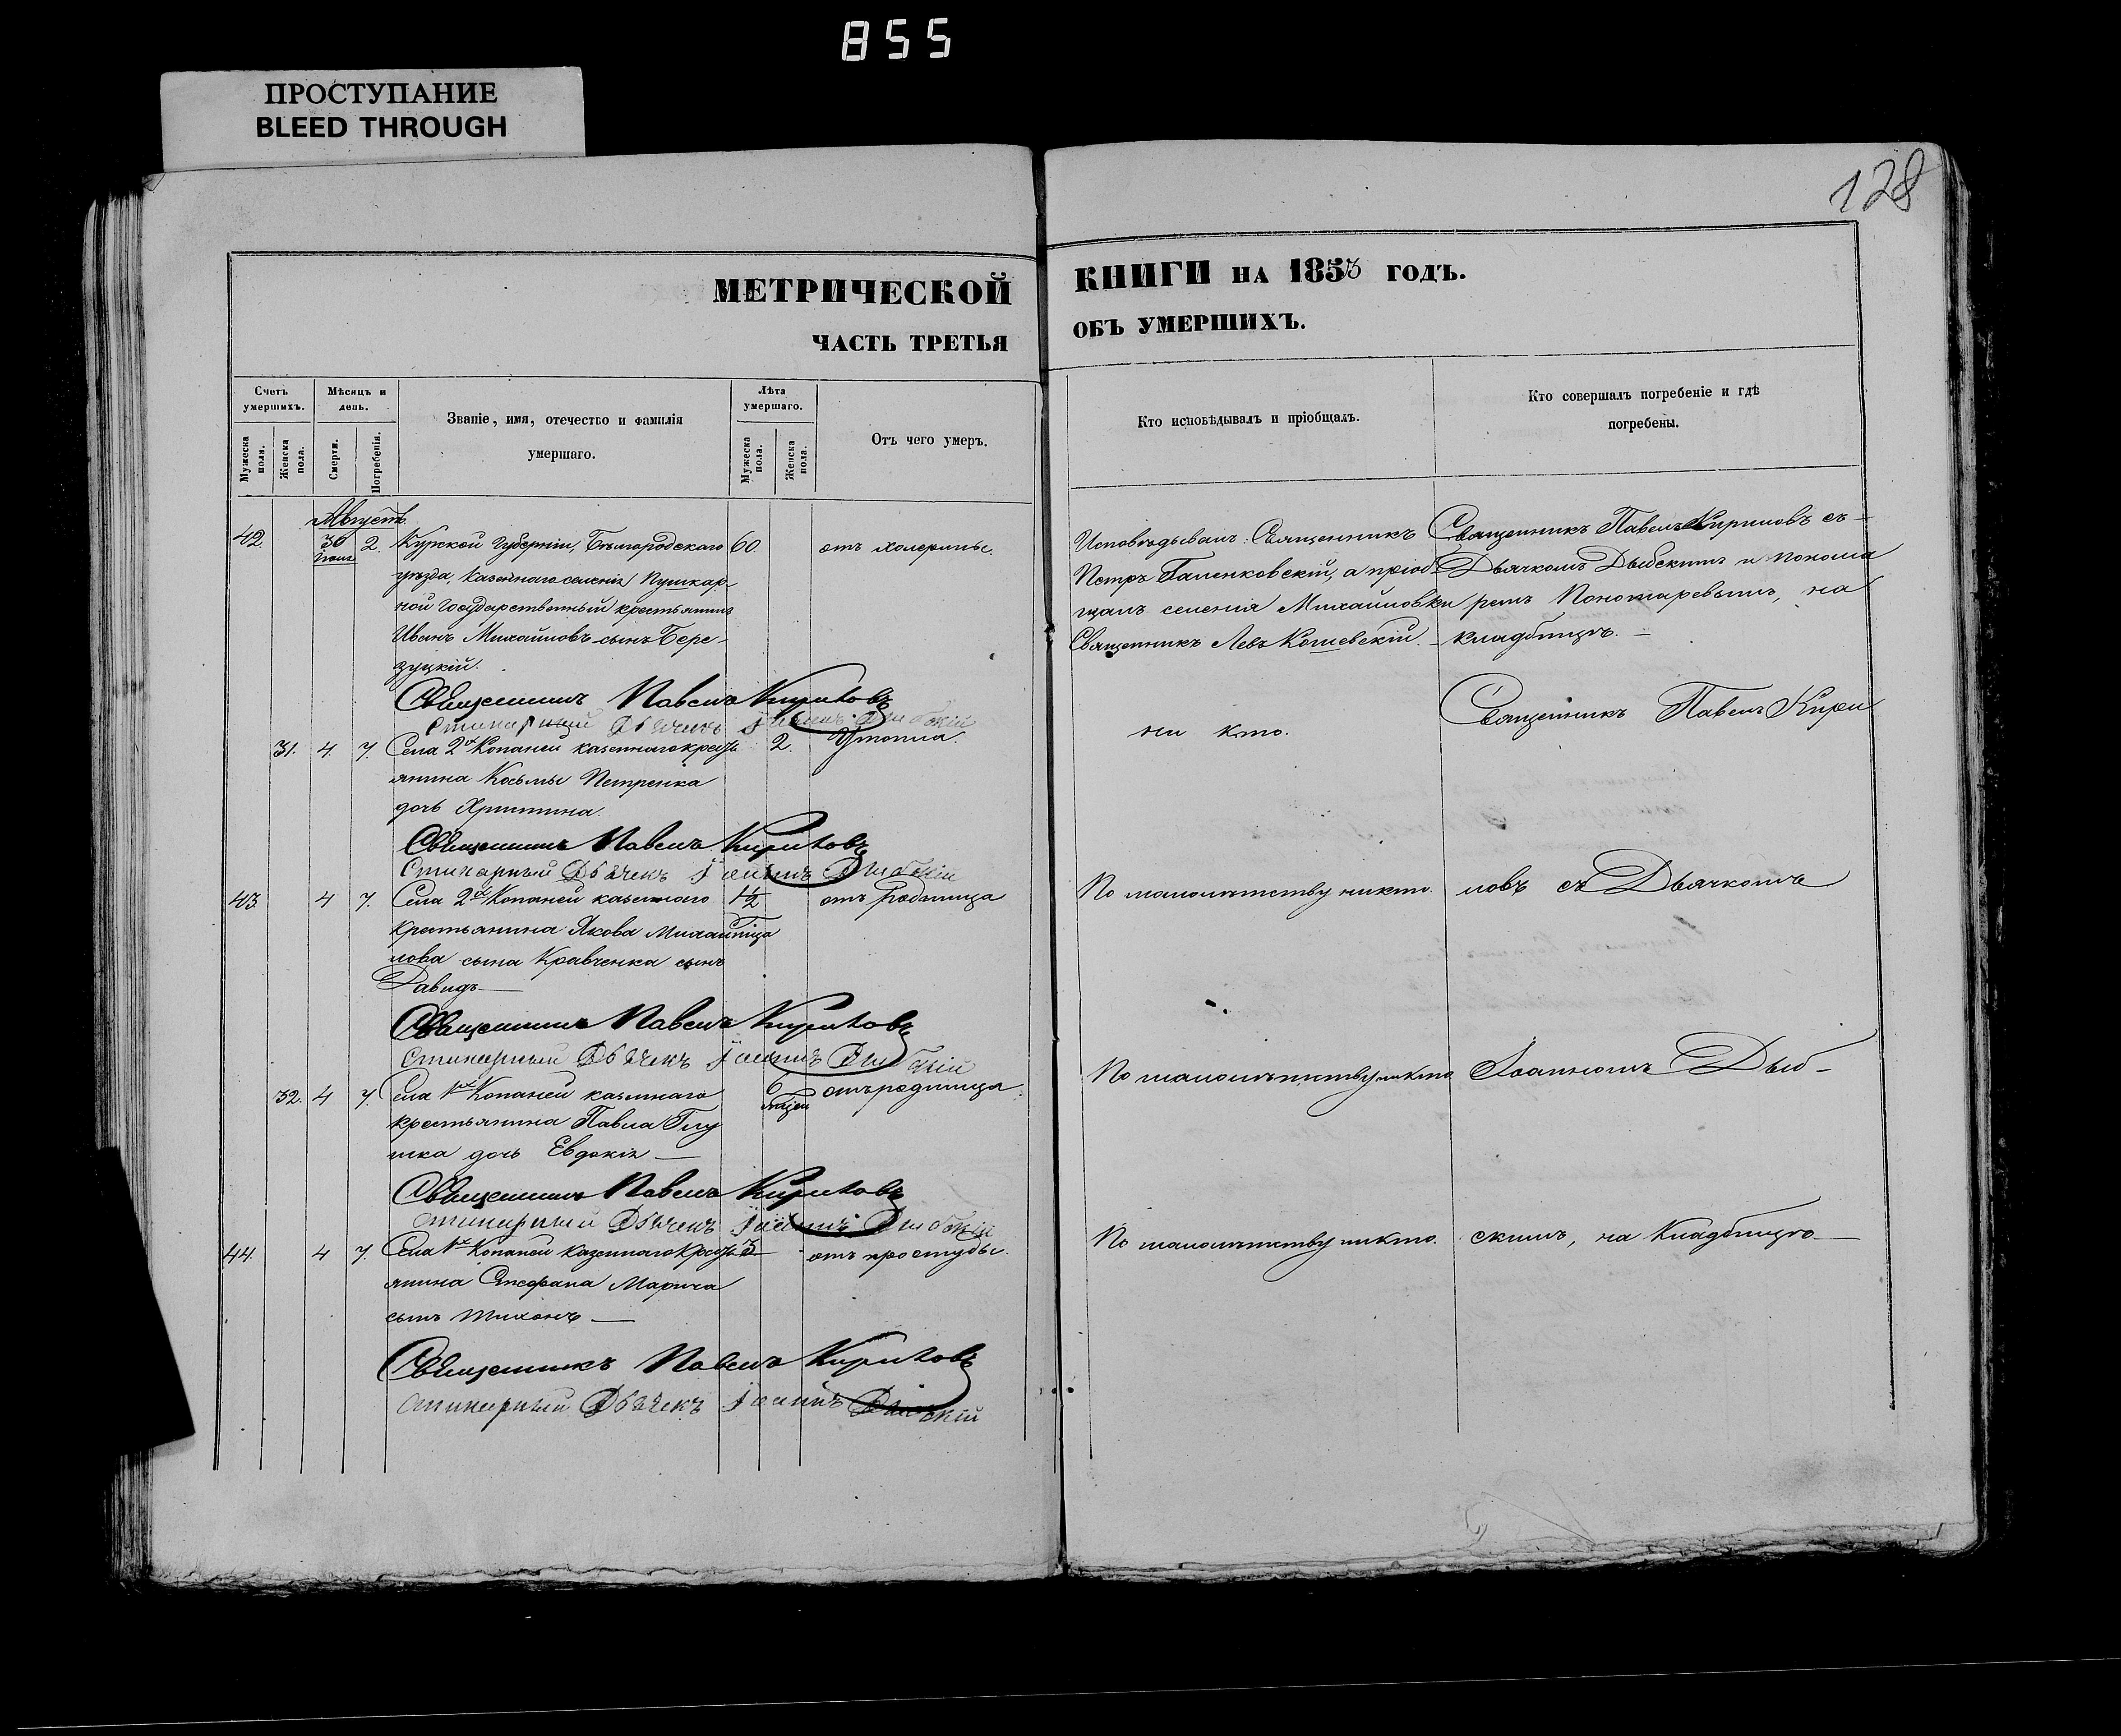 855
ПРОСТУПАНИЕ
BLEED THROUGH
128
МЕТРИЧЕСКОЙ КНИГИ НА 1853 ГОДЪ.
ЧАСТЬ ТРЕТЬЯ ОБЪ УМЕРШИХЪ.
Счетъ умершихъ.
Мужеска пола.
Женска пола.
Мѣсяцъ и день.
Смерти.
Погребенія.
Званіе, имя, отечество и фамилія
умершаго.
Лѣта умершаго.
Мужеска пола.
Женска пола.
Отъ чего умеръ.
Кто исповѣдывалъ и пріобщалъ.
Кто совершалъ погребеніе и гдѣ
погребены.
Августъ
42. 30 2. Курской Губерніи, Бѣлгородскаго 60 отъ холерины.
уѣзда, казеннаго селенія Пушкар-
ной государственный крестьянинъ
Иванъ Михайловъ сынъ Бере-
зуцкій.
Исповѣдывалъ: Священникъ
Петръ Галенковскій, а пріоб-
щалъ селенія Михайловки
Священникъ Левъ Кошевскій. –
Священникъ Павелъ Кириловъ съ –
Дьячкомъ Дыбскимъ и понома
ремъ Пономаревымъ, на
кладбищѣ. –
Священникъ Павелъ Кириловъ
Дьячекъ Іоаннъ Дыбскій
31. 4 7. Села 2хъ Копаней казеннаго кресть 2. Утопла.
янина Косьмы Петренка
дочь Христина.
ни кто.
Священникъ Павелъ Кири
Священникъ Павелъ Кириловъ
Дьячекъ Іоаннъ Дыбскій
43 4 7. Села 2хъ Копаней казеннаго 1½ отъ родимца
крестьянина Якова Михай
лова сына Кравченка сынъ
Давидъ —
По малолѣтству никто.
ловъ съ Дьячкомъ
Священникъ Павелъ Кириловъ
Дьячекъ Іоаннъ Дыбскій
32. 4 7. Села 1хъ Копаней казеннаго 6 отъ родимца.
крестьянина Павла Глу
шка дочь Евдокія —
По малолѣтству никто
Іоанномъ Дыб –
Священникъ Павелъ Кириловъ
Дьячекъ Іоаннъ Дыбскій
44 4 7. Села 1хъ Копаней казеннаго кресть 3 отъ простуды.
янина Стефана Марича
сынъ Тихонъ —
По малолѣтству никто.
скимъ, на Кладбищѣ —
Священникъ Павелъ Кириловъ
Дьячекъ Іоаннъ Дыбскій